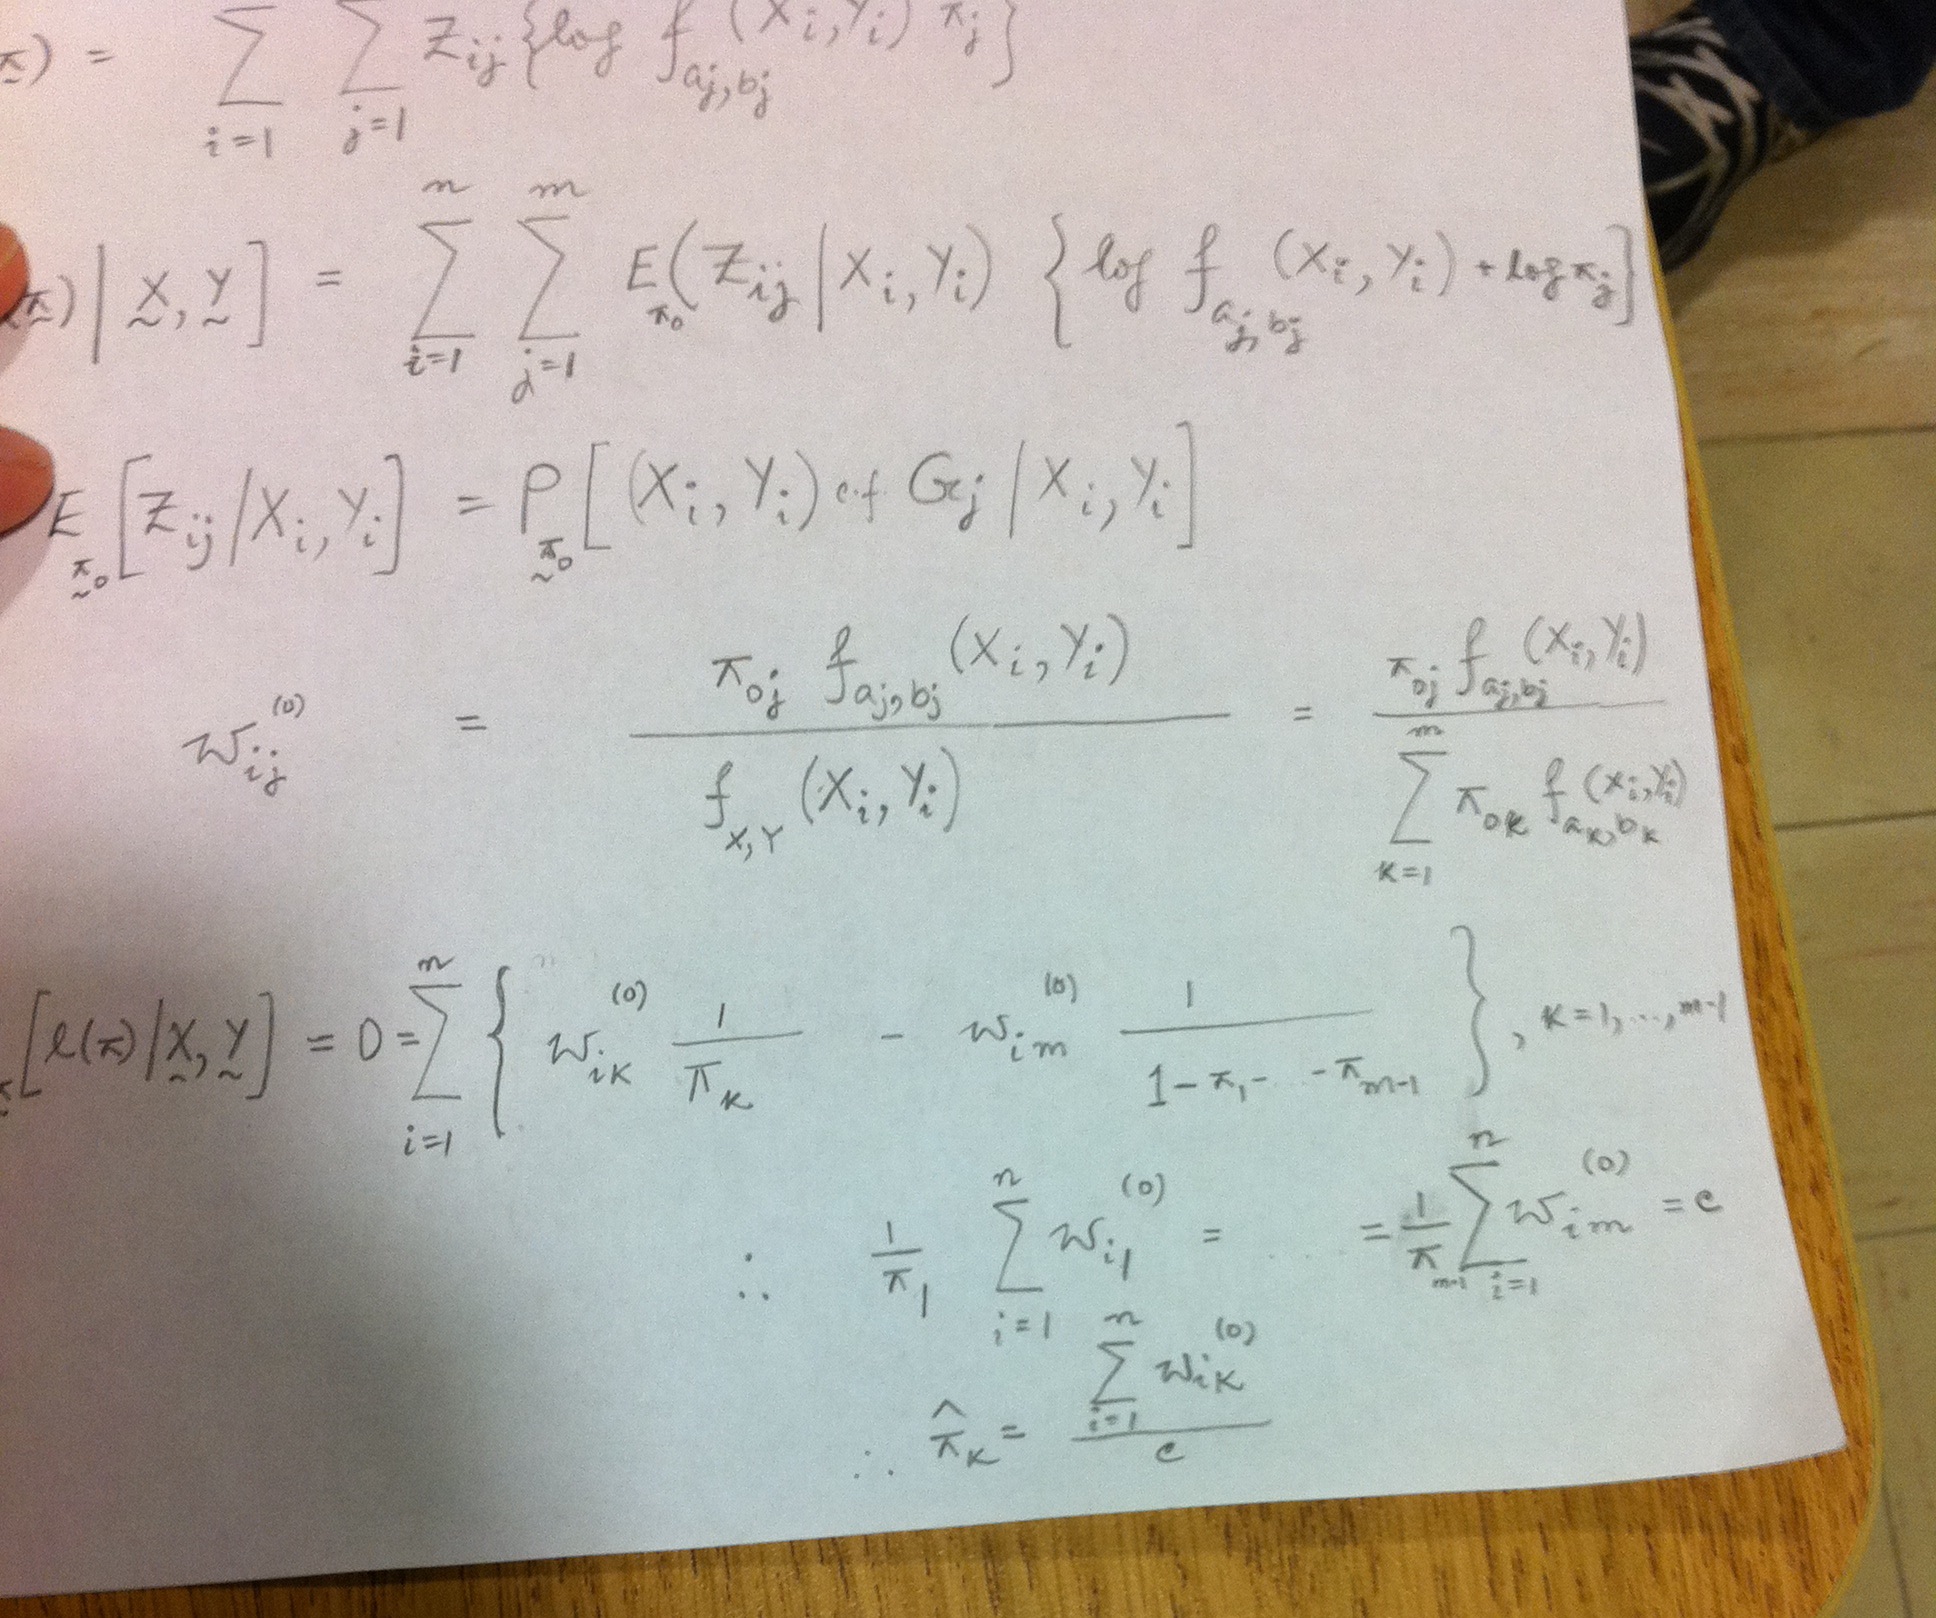 π) = ∑_{i=1} ∑_{j=1} Z_{ij} {log f_{aj,bj} (X_i, Y_i) π_j}
π) | X̰, Y̰ ] = ∑_{i=1}^{n} ∑_{j=1}^{m} E_{π_0} (Z_{ij} | X_i, Y_i) { log f_{aj,bj} (X_i, Y_i) + log π_j ]
E_{π̰_0} [Z_{ij} | X_i, Y_i] = P_{π̰_0} [ (X_i, Y_i) of G_j | X_i, Y_i ]
w_{ij}^{(0)} = π_{0j} f_{aj,bj} (X_i, Y_i) / f_{X,Y} (X_i, Y_i) = π_{0j} f_{aj,bj} (X_i, Y_i) / ∑_{k=1}^{m} π_{0k} f_{ak,bk} (X_i, Y_i)
[ℓ(π) | X̰, Y̰ ] = 0 = ∑_{i=1}^{n} { w_{ik}^{(0)} 1/π_k - w_{im}^{(0)} 1/(1-π_1- ... -π_{m-1}) }, k=1,...,m-1
∴ 1/π_1 ∑_{i=1}^{n} w_{i1}^{(0)} = .... = 1/π_{m-1} ∑_{i=1}^{n} w_{im}^{(0)} = c
∴ π̂_k = ∑_{i=1}^{n} w_{ik}^{(0)} / c